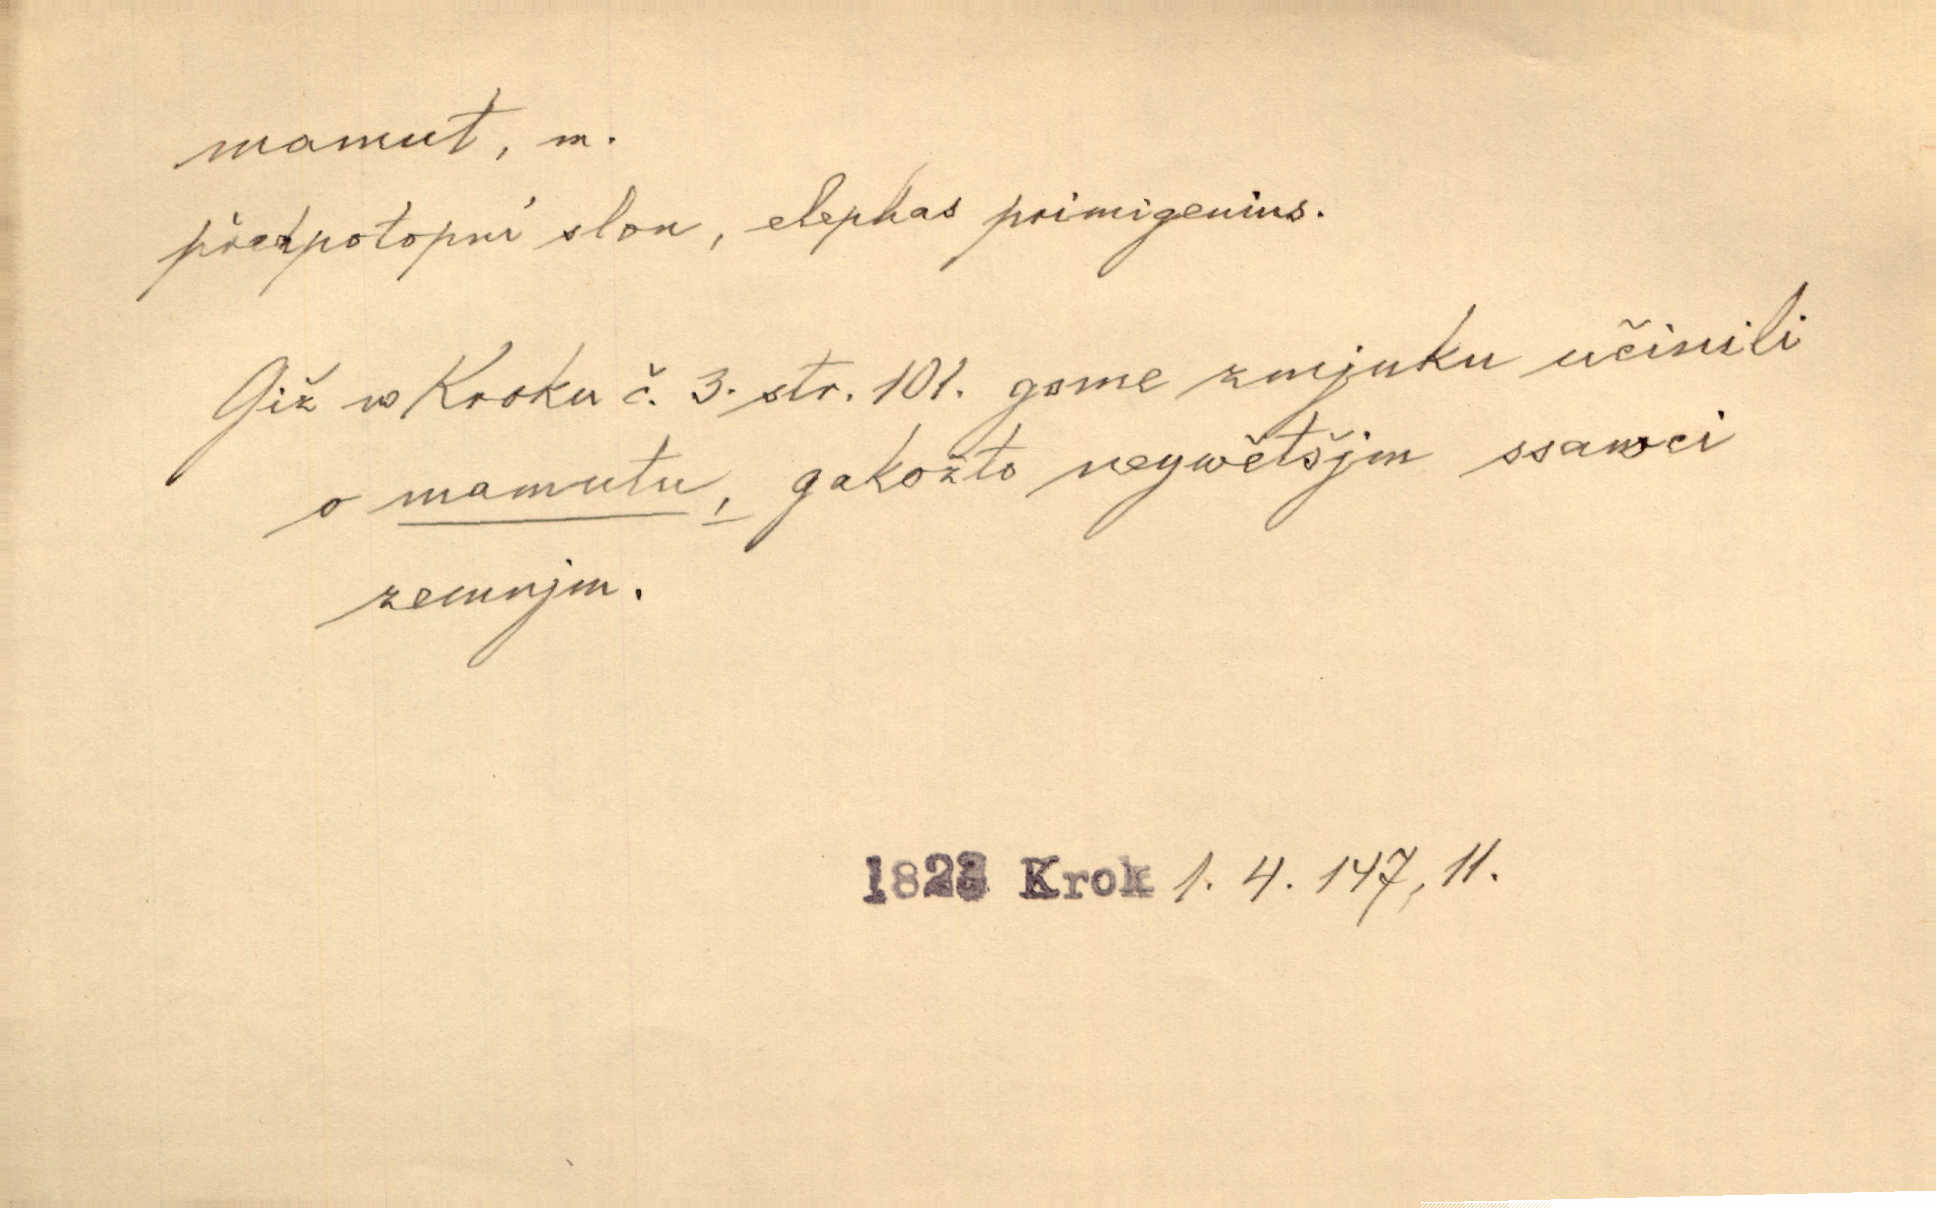 mamut, m.
předpotopní slon, elephas primigenius.
Giž w Kroku č. 3. str. 101. gsme zmjnku učinili
o mamutu, gakožto neywětšjm ssawci
zemnjm.
Krok 1. 4. 147, 11.